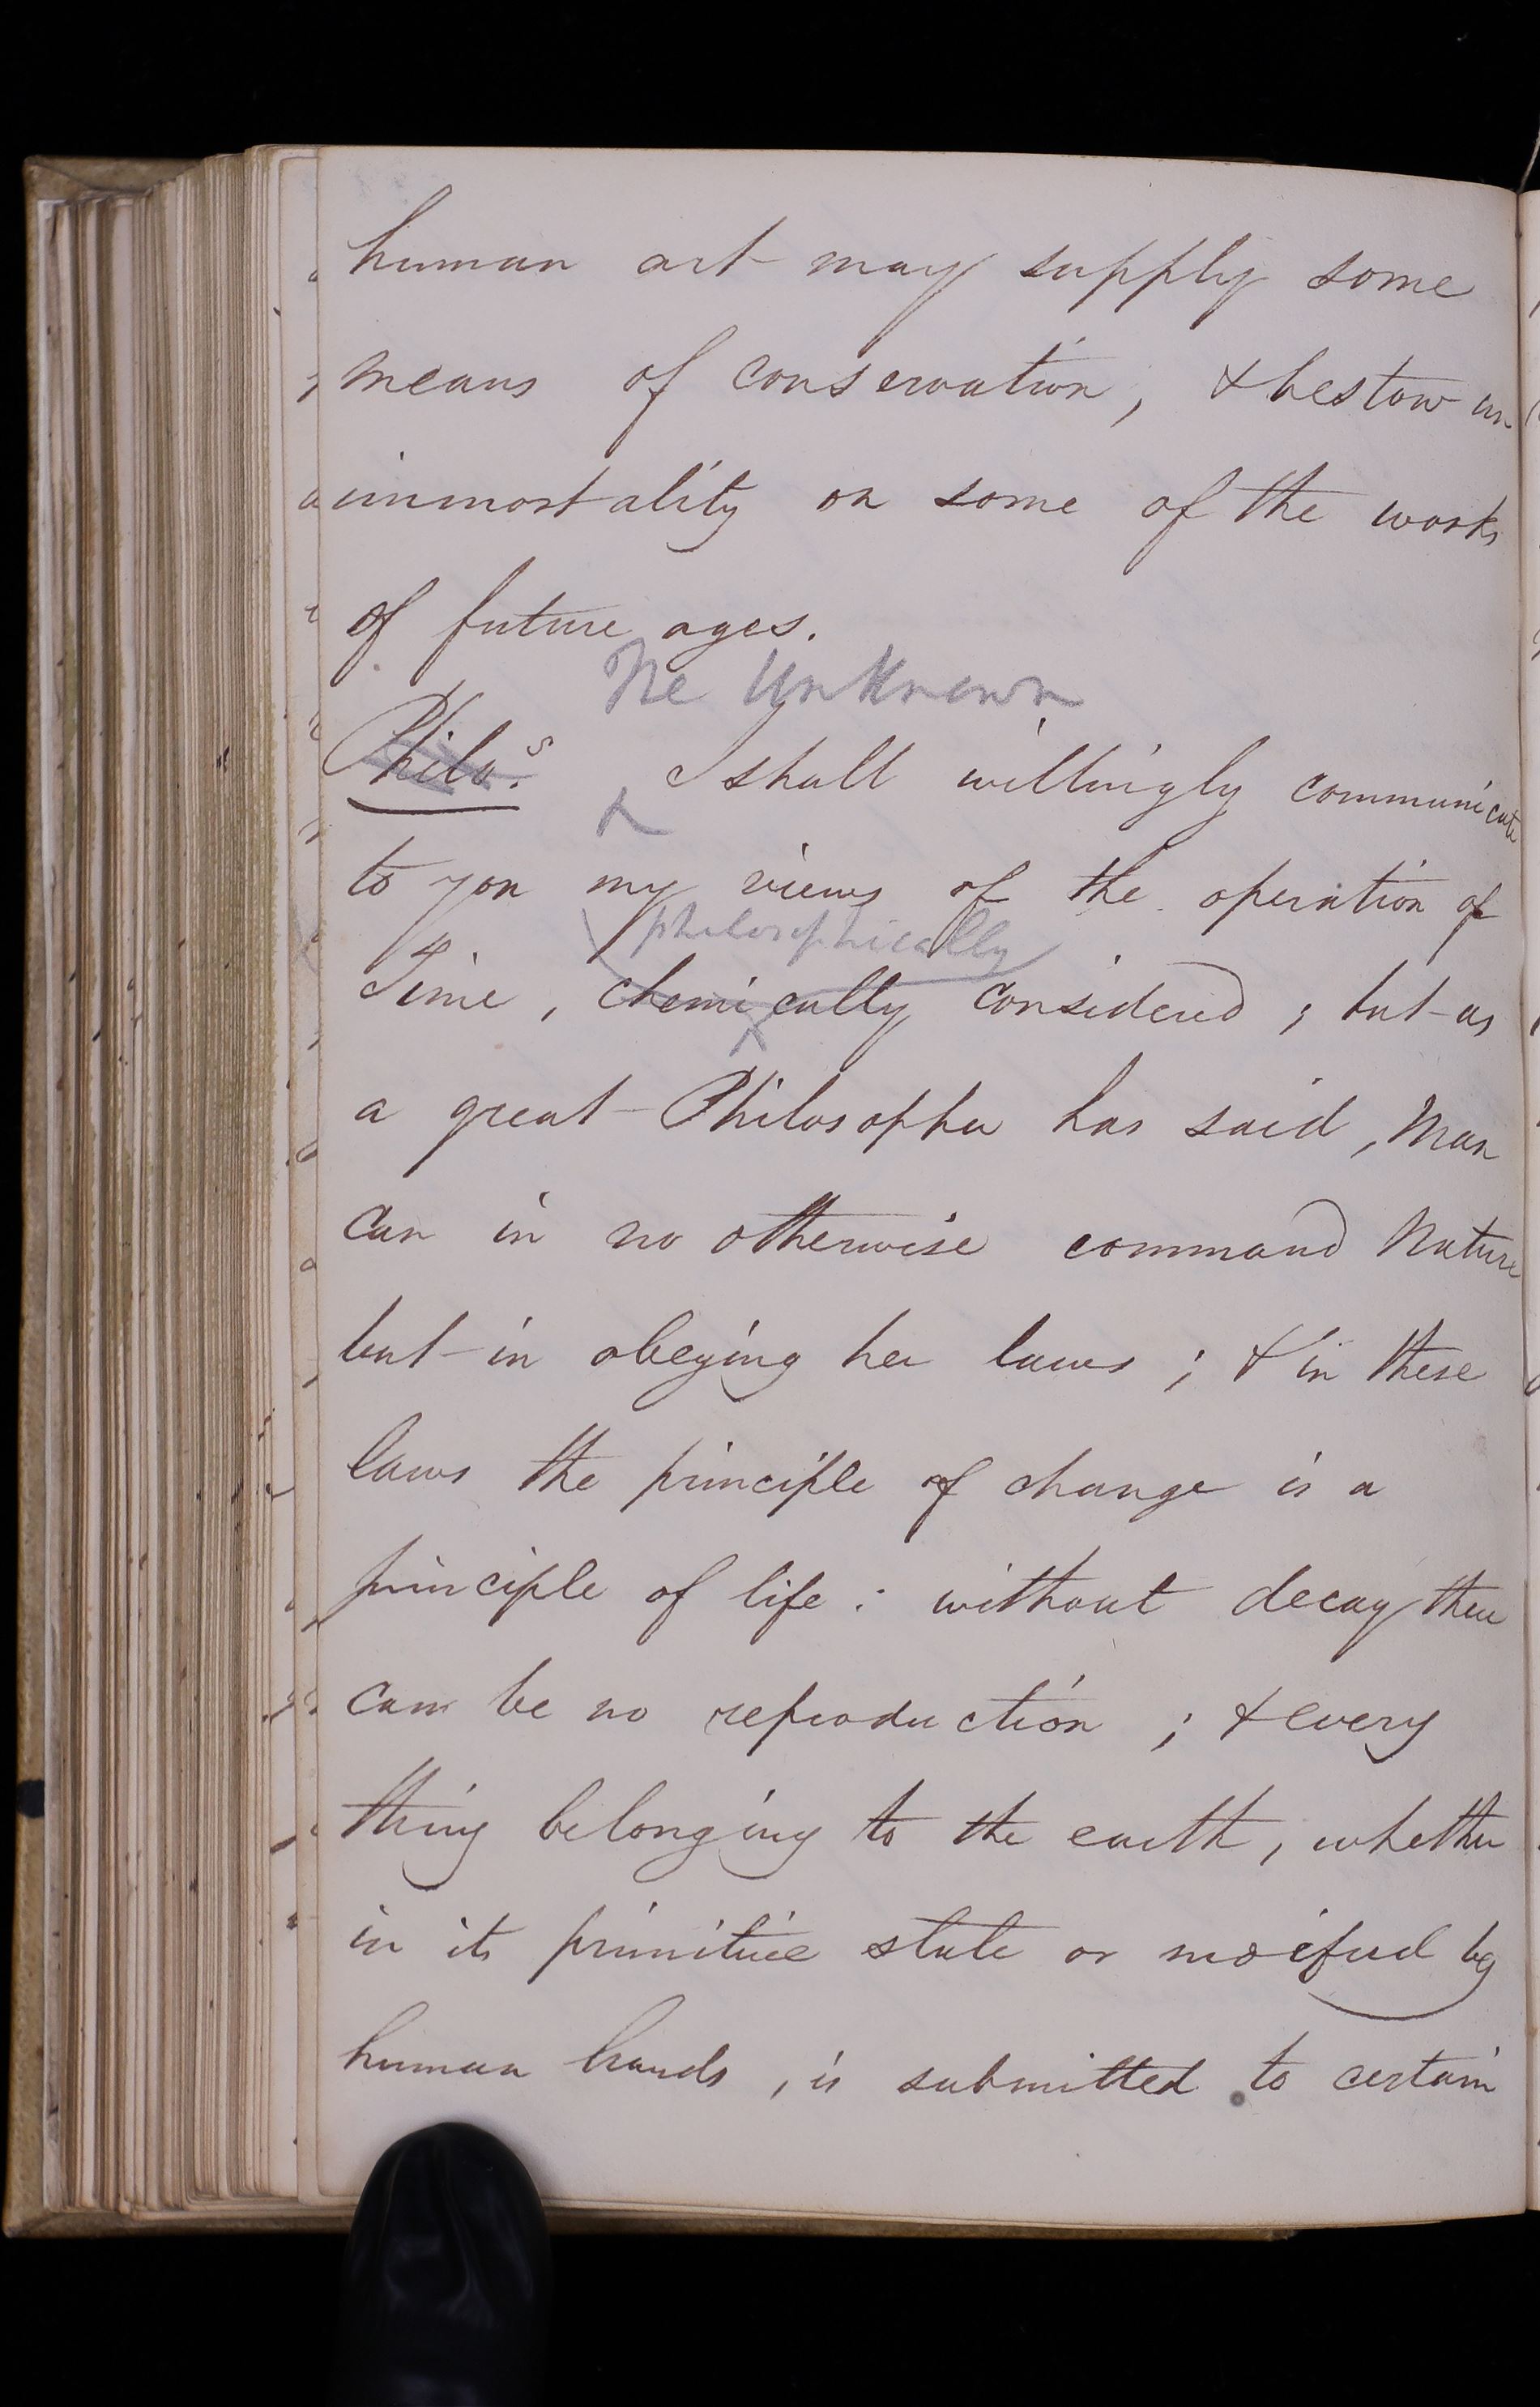 human art may supply some
means of conservation, & bestow an
immortality on some of the works
of future ages.
The Unknown
Philo.s I shall willingly communicate
to you my views of the operation of
philosophically
Time, chemically considered; but as
a great Philosopher has said, Man
can in no otherwise command Nature
but in obeying her laws; & in these
laws the principle of change is a
principle of life: without decay there
can be no reproduction; & every
thing belonging to the earth, whether
in its primitive state or moified by
human hands, is submitted to certain